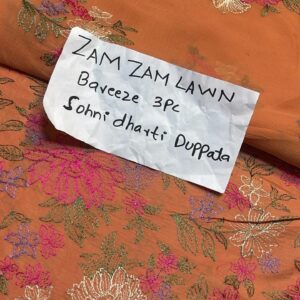 ZAM ZAM LAWN
Bareeze 3PC
Sohni dharti Duppada